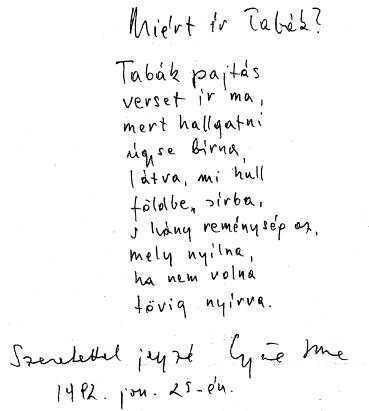 Miért ír Tabák?
Tabák pajtás
verset ír ma,
mert hallgatni
úgyse bírna,
látva, mi hull
földbe, sírba,
s hány reménység az,
mely nyílna,
ha nem volna
tövig nyírva.
Szeretettel jegyzé Győre Imre
1982. jan. 25-én.